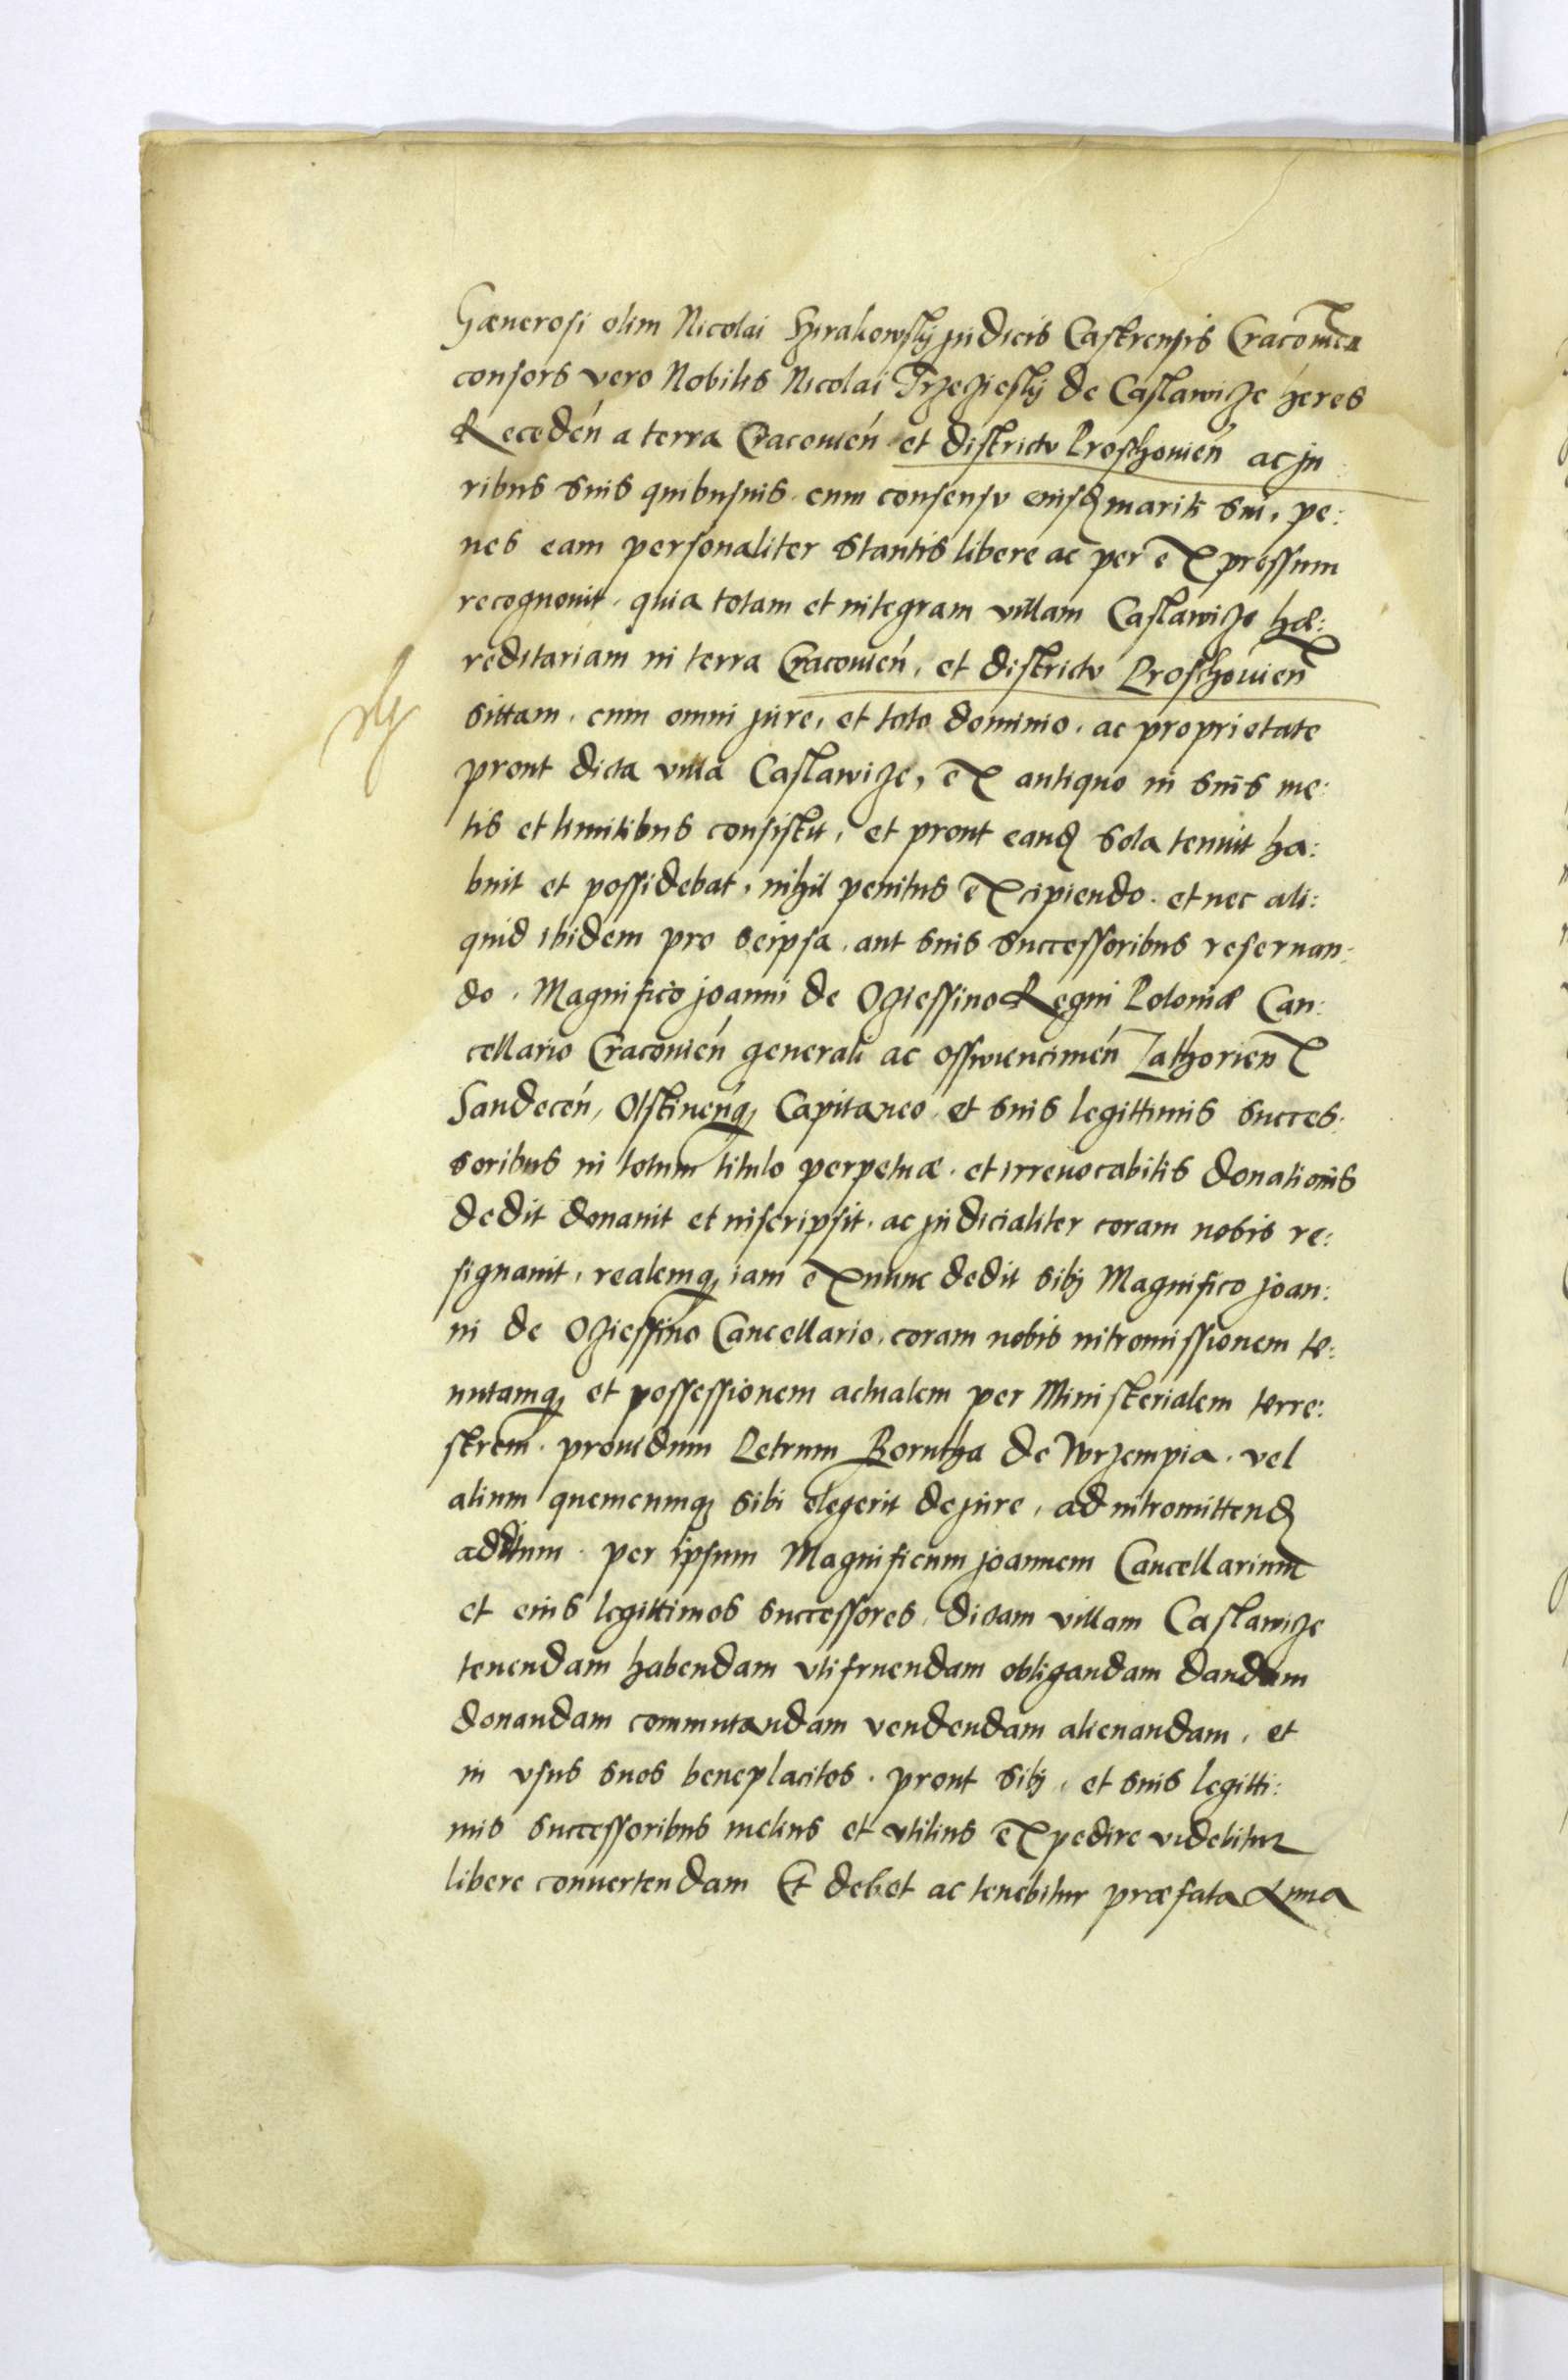 Generosi olim Nicolai Szyrakowskij judicis Castrensis Cracouien
consors vero Nobilis Nicolai Trzeczieskij de Caslawicze heres
Recedeń a terra Cracouień et districtv Proschouień ac ju
ribus suis quibusuis. cum consensv eiusdꝫ mariti sui, pe:
nes eam personaliter stantis libere ac per expressum
recognouit, quia totam et integram villam Caslawicze hæ:
reditariam in terra Cracouień, et districtv Proschouień
sittam, cum omni jure, et toto dominio, ac proprietate
prout dicta villa Caslawicze, ex antiquo in suis me:
tis et limitibus consistit, et prout eandꝫ sola tenuit ha:
buit et possidebat, nihil penitus excipiendo. et nec ali:
quid ibidem pro seipsa, aut suis successoribus reseruan:
do. Magnifico joanni de Ocziessino Regni Poloniæ Can:
cellario Cracouień generali ac osswiencimeń Zathorień
Sandeceń, Olstineńqꝫ Capitaneo. et suis legittimis succes:
soribus in totum titulo perpetuæ. et irreuocabilis donationis
dedit donauit et inscripsit. ac judicialiter coram nobis re:
signauit, realemqꝫ iam exnunc dedit sibj Magnifico joan:
ni de Ocziessino Cancellario, coram nobis intromissionem te:
nutamqꝫ et possessionem actualem per Ministerialem terre:
strem. prouidum Petrum Borutha de Wrzempia. vel
alium quemcumqꝫ sibi elegerit dejure, ad intromittendꝫ
additum. per ipsum Magnificum joannem Cancellarium
et eius legittimos successores, dictam villam Caslawicze
tenendam habendam vtifruendam obligandam dandam
donandam commutandam vendendam alienandam, et
in vsus suos beneplacitos. prout sibj, et suis legitti:
mis successoribus melius et vtilius expedire videbitur
libere conuertendam Et debet ac tenebitur præfata Anna